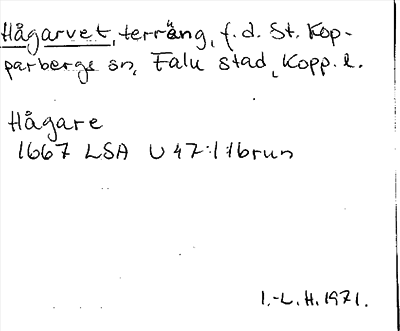 Hågarvet, terräng, f.d. St. Kop-
parbergs sn, Falu stad, Kopp. l.
Hågare
1667 LSA U 47:1:1brun
I.-L. H. 1971.